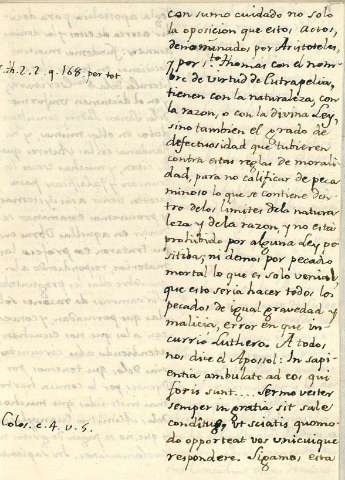 con sumo cuidado no solo
la oposicion que estos actos,
denominados por Aristoteles,
y por S.to Thomas con el nom-
S.Th. 2. 2. q. 168. per tot
bre de virtud de Eutrapelia,
tienen con la naturaleza, con
la razon, o con la divina Ley,
sino tambien el grado de
defectuosidad que tubieren
contra estas reglas de morali-
dad, para no calificar de peca-
minoso lo que se contiene den-
tro de los limites de la natura-
leza y de la razon, y no está
prohibido por alguna Ley po-
sitiba; ni demos por pecado
mortal lo que es solo venial,
que esto seria hacer todos los
pecados de igual gravedad y
malicia, error en que in-
currio Luthero. A todos
nos dice el Apostol: In sapi-
entia ambulate ad eos qui
foris sunt.... Sermo vester
semper in gratia sit sale
Colos. c. 4. v. 5.
conditus, ut sciatis quomo-
do opporteat vos unicuique
respondere. Sigamos esta